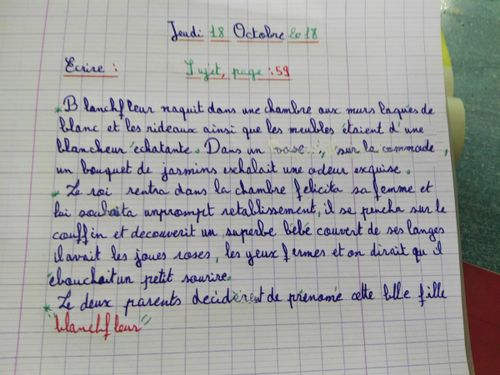 Jeudi 18 Octobre 2018
Ecrire : Sujet, page : 59
* Blanchfleur naquit dans une chambre aux murs laqués de
blanc et les rideaux ainsi que les meubles étaient d'une
blancheur echatante. Dans un vase, sur la commode,
un bouquet de jasmins exhalait une odeur exquise.
* Le roi rentra dans la chambre felicita sa femme et
lui souhaita unprompt retablissement, il se pencha sur le
couffin et decouvrit un superbe bébé couvert de ses langes
ilavait les joues roses, les yeux fermes et on dirait qu'il
ebauchait un petit sourire.
* Le deux parents decidèrent de prénome cette blle fille
"blanchfleur"